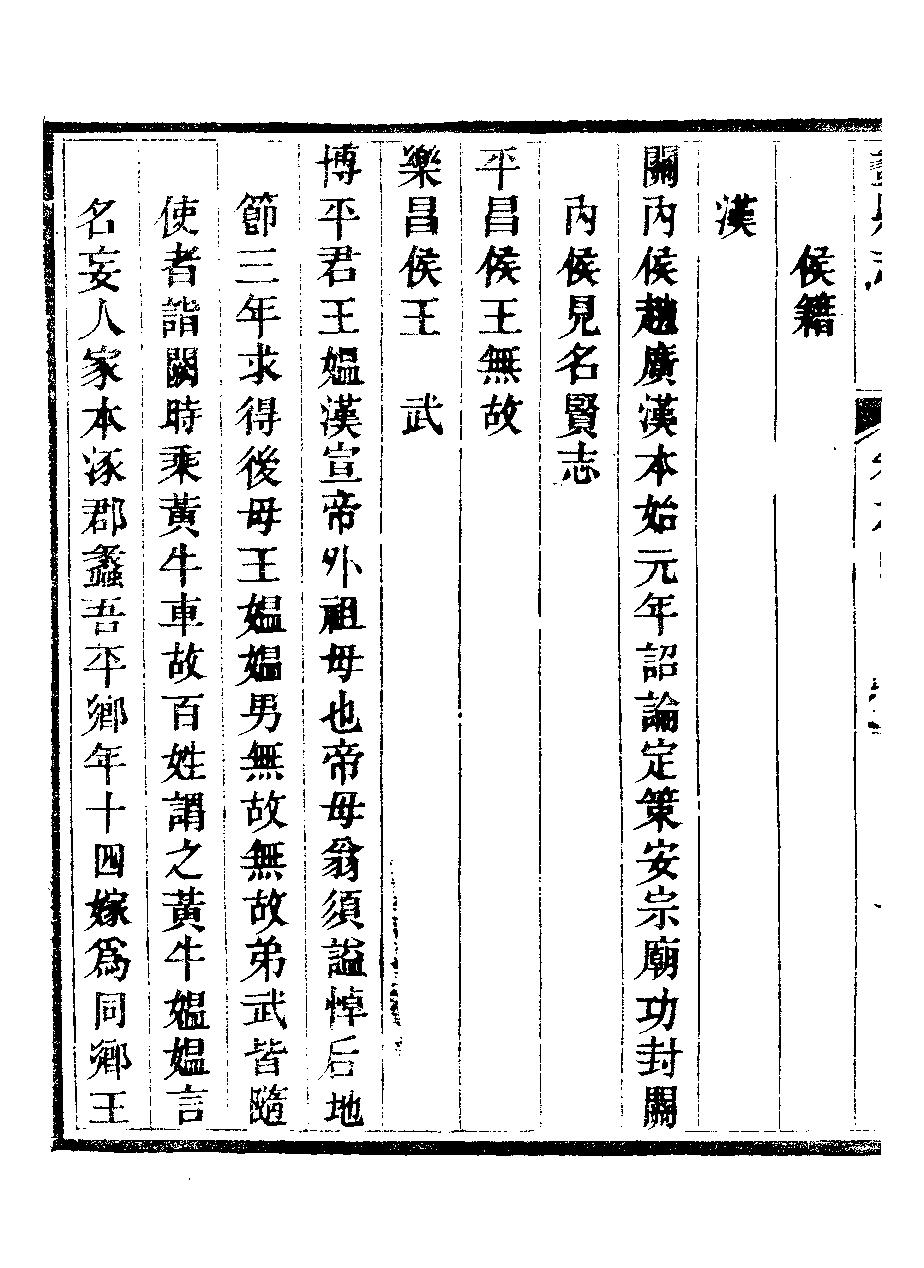 侯籍
漢
關內侯趙廣漢本始元年詔論定策安宗廟功封關
內侯見名賢志
平昌侯王無故
樂昌侯王　武
博平君王媼漢宣帝外祖母也帝母翁須謚悼后地
節三年求得後母王媼媼男無故無故弟武皆隨
使者詣闕時乘黃牛車故百姓謂之黃牛媼媼言
名妄人家本涿郡蠡吾平鄉年十四嫁爲同鄉王